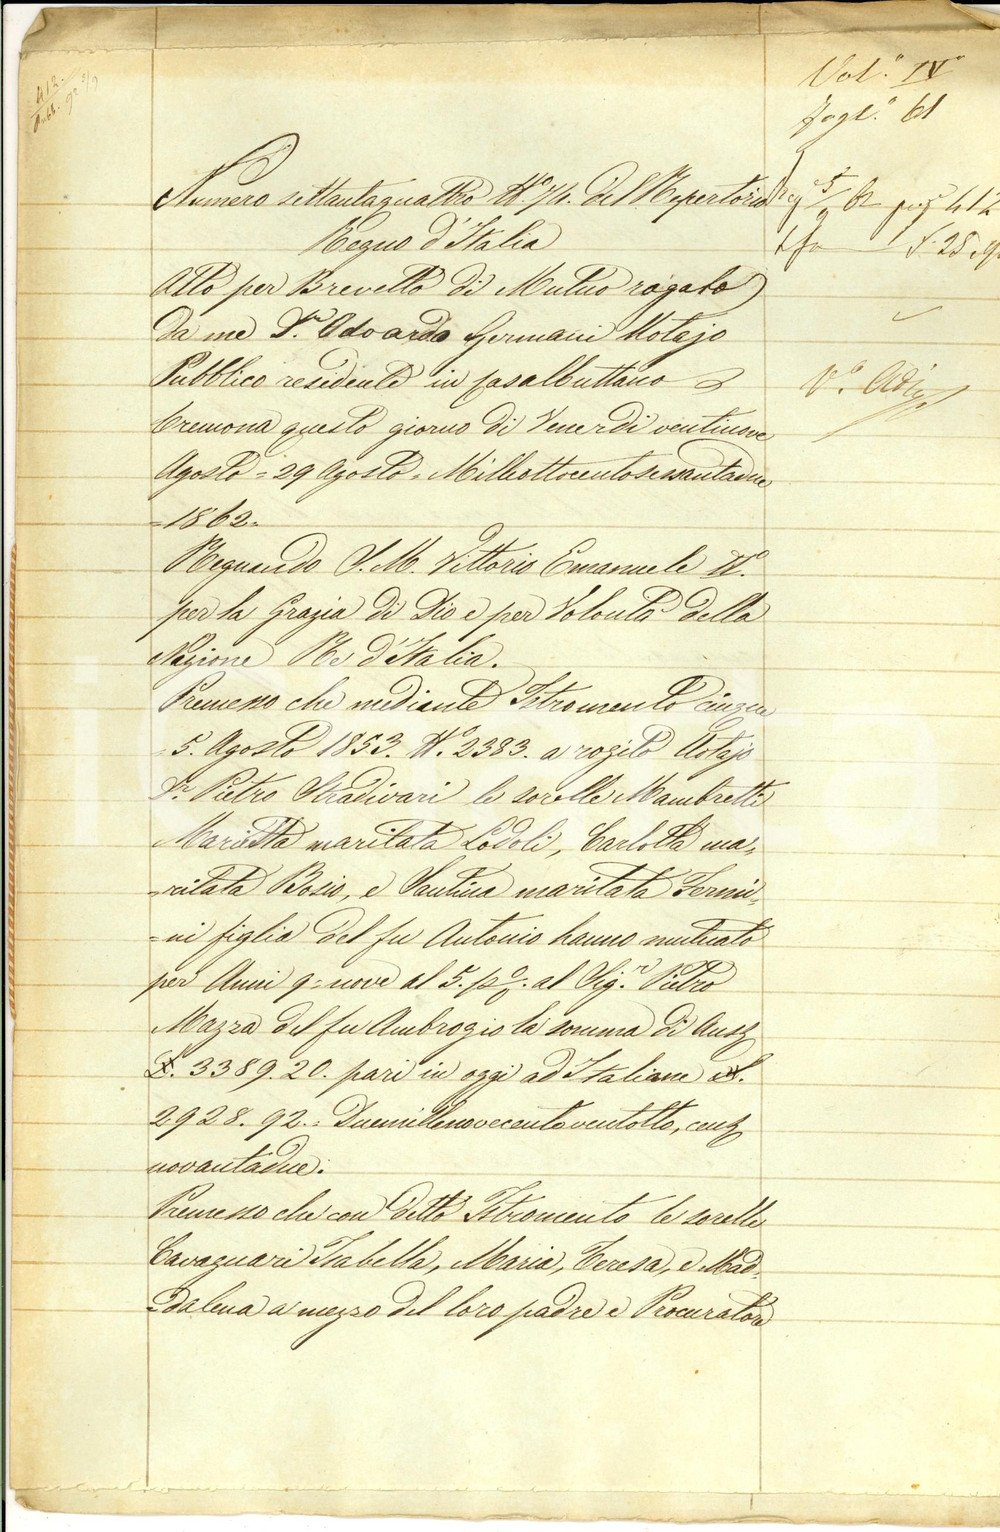 412
Vol.° IV°
fogl.° 61
Numero settantaquattro N.° 74. del Repertorio
Regno d'Italia
Atto per Brevetto di Mutuo rogato
da me D.r Edoardo Germani Notajo
Pubblico residente in Casalbuttano
Cremona questo giorno di Venerdì ventinove
Agosto = 29 Agosto = Milleottocentosessantadue
= 1862 =
Regnando S. M. Vittorio Emanuele II°.
per la Grazia di Dio e per Volontà della
Nazione Re d'Italia.
Premesso che mediante Istromento cinque
5. Agosto 1853. N.° 2383. a rogito Notajo
D.r Pietro Stradivari le sorelle Mambretti
Marietta maritata Lodoli, Carlotta ma=
=ritata Bosio, e Santina maritata Fermi=
=ni figlie del fu Antonio hanno mutuato
per Anni 9 = nove al 5. p%. al Sig.r Pietro
Mazza del fu Ambrogio la somma di Aust.
L. 3389. 20. pari in oggi ad Italiane L.
2928. 92. = Duemillenovecentoventotto, cent.
novantadue.
Premesso che con detto Istromento le sorelle
Cavagnari Isabella, Maria, Teresa, e Mad=
=dalena a mezzo del loro padre e Procuratore